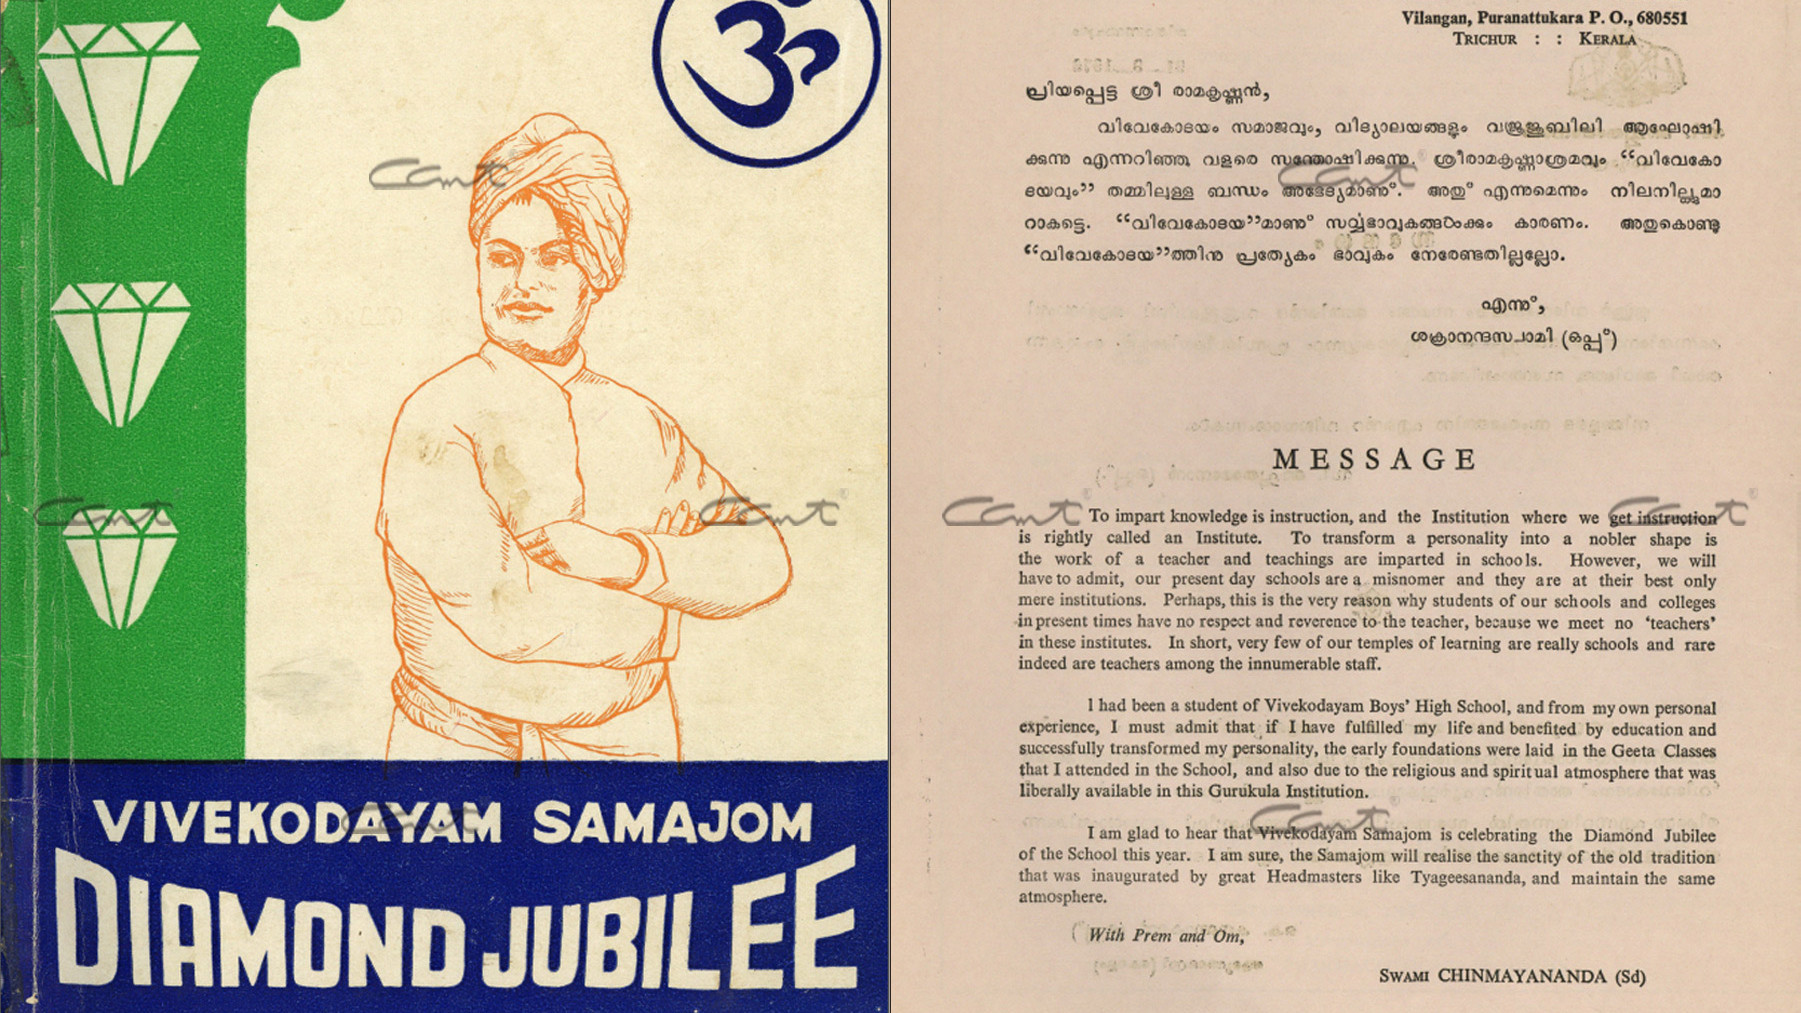 ॐ
VIVEKODAYAM SAMAJOM
DIAMOND JUBILEE
Vilangan, Puranattukara P. O., 680551
TRICHUR : : KERALA
പ്രിയപ്പെട്ട ശ്രീ രാമകൃഷ്ണൻ,
വിവേകോദയം സമാജവും, വിദ്യാലയങ്ങളും വജ്രജൂബിലി ആഘോഷി
ക്കുന്നു എന്നറിഞ്ഞു വളരെ സന്തോഷിക്കുന്നു. ശ്രീരാമകൃഷ്ണാശ്രമവും “വിവേകോ
ദയവും” തമ്മിലുള്ള ബന്ധം അഭേദ്യമാണു്. അതു് എന്നുമെന്നും നിലനില്ക്കുമാ
റാകട്ടെ. “വിവേകോദയ”മാണു് സർവ്വഭാവുകങ്ങൾക്കും കാരണം. അതുകൊണ്ടു
“വിവേകോദയ”ത്തിനു പ്രത്യേകം ഭാവുകം നേരേണ്ടതില്ലല്ലോ.
എന്നു്,
ശക്രാനന്ദസ്വാമി (ഒപ്പു്)
MESSAGE
To impart knowledge is instruction, and the Institution where we get instruction
is rightly called an Institute. To transform a personality into a nobler shape is
the work of a teacher and teachings are imparted in schools. However, we will
have to admit, our present day schools are a misnomer and they are at their best only
mere institutions. Perhaps, this is the very reason why students of our schools and colleges
in present times have no respect and reverence to the teacher, because we meet no ‘teachers’
in these institutes. In short, very few of our temples of learning are really schools and rare
indeed are teachers among the innumerable staff.
I had been a student of Vivekodayam Boys’ High School, and from my own personal
experience, I must admit that if I have fulfilled my life and benefited by education and
successfully transformed my personality, the early foundations were laid in the Geeta Classes
that I attended in the School, and also due to the religious and spiritual atmosphere that was
liberally available in this Gurukula Institution.
I am glad to hear that Vivekodayam Samajom is celebrating the Diamond Jubilee
of the School this year. I am sure, the Samajom will realise the sanctity of the old tradition
that was inaugurated by great Headmasters like Tyageesananda, and maintain the same
atmosphere.
With Prem and Om,
SWAMI CHINMAYANANDA (Sd)